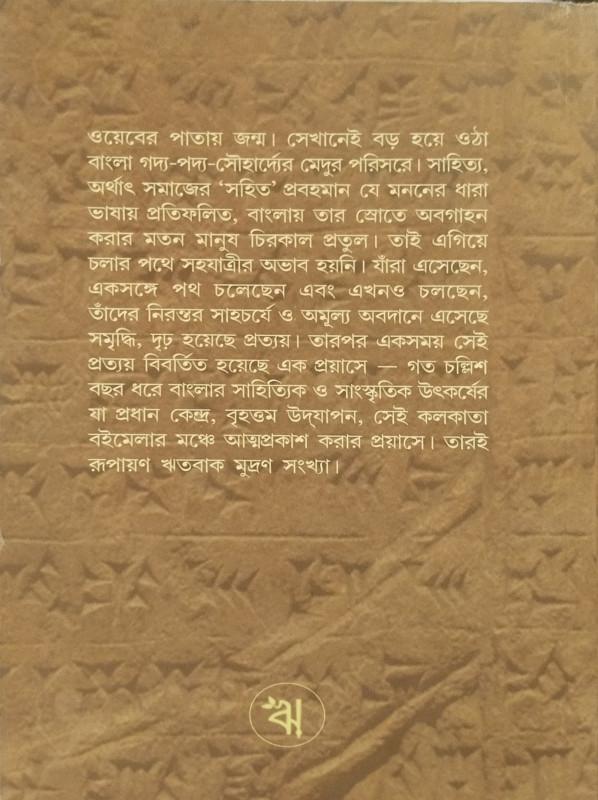 ওয়েবের পাতায় জন্ম। সেখানেই বড় হয়ে ওঠা
বাংলা গদ্য-পদ্য-সৌহার্দ্যের মেদুর পরিসরে। সাহিত্য,
অর্থাৎ সমাজের ‘সহিত’ প্রবহমান যে মননের ধারা
ভাষায় প্রতিফলিত, বাংলায় তার স্রোতে অবগাহন
করার মতন মানুষ চিরকাল প্রতুল। তাই এগিয়ে
চলার পথে সহযাত্রীর অভাব হয়নি। যাঁরা এসেছেন,
একসঙ্গে পথ চলেছেন এবং এখনও চলছেন,
তাঁদের নিরন্তর সাহচর্যে ও অমূল্য অবদানে এসেছে
সমৃদ্ধি, দৃঢ় হয়েছে প্রত্যয়। তারপর একসময় সেই
প্রত্যয় বিবর্তিত হয়েছে এক প্রয়াসে — গত চল্লিশ
বছর ধরে বাংলার সাহিত্যিক ও সাংস্কৃতিক উৎকর্ষের
যা প্রধান কেন্দ্র, বৃহত্তম উদ্‌যাপন, সেই কলকাতা
বইমেলার মঞ্চে আত্মপ্রকাশ করার প্রয়াসে। তারই
রূপায়ণ ঋতবাক মুদ্রণ সংখ্যা।
ঋ